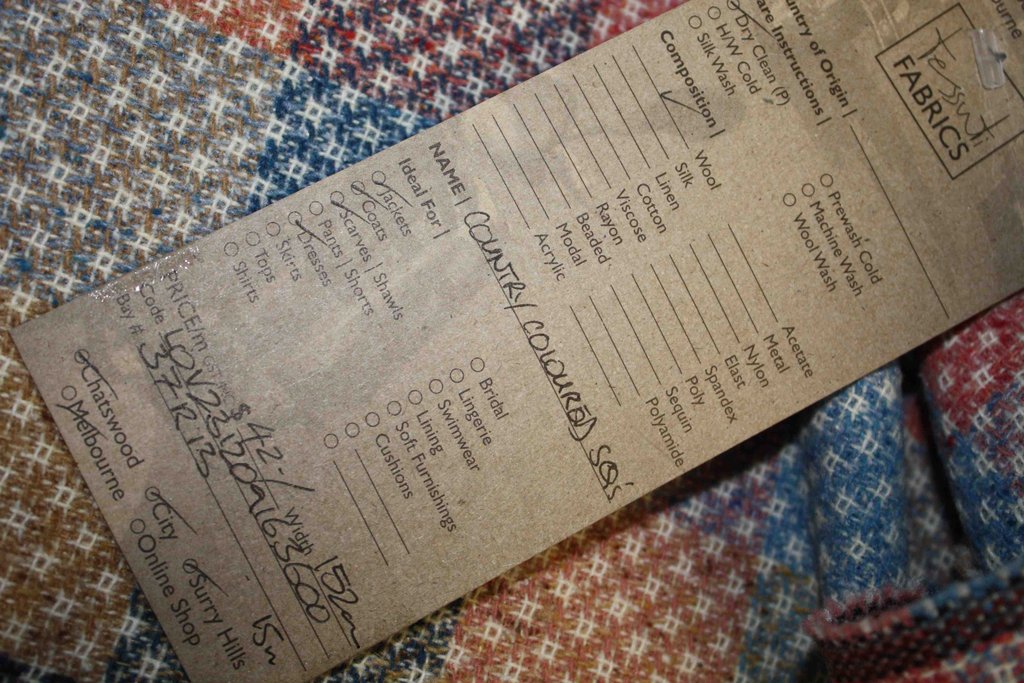 ourne
Tessuti
FABRICS
untry of Origin |
are Instructions |
Dry Clean (P)
H/W Cold
Silk Wash
Prewash Cold
Machine Wash
Wool Wash
Composition |
Wool
Silk
Linen
Cotton
Viscose
Rayon
Beaded
Modal
Acrylic
Acetate
Metal
Nylon
Elast
Spandex
Poly
Sequin
Polyamide
NAME | COUNTRY COLOURED SQ'S
Ideal For |
Jackets
Coats
Scarves | Shawls
Pants | Shorts
Dresses
Skirts
Tops
Shirts
Bridal
Lingerie
Swimwear
Lining
Soft Furnishings
Cushions
PRICE/m $42-/ Width 152cm
Code
Bay # 37R13
Chatswood City Surry Hills 15m
Melbourne Online Shop